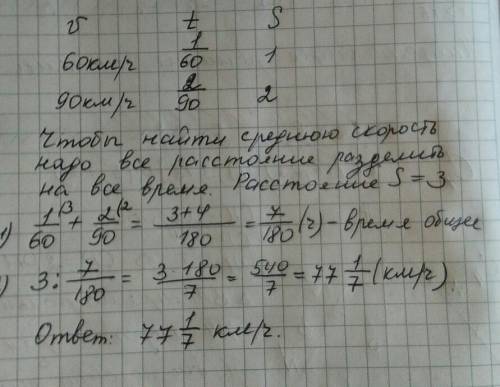 v t S
60км/ч 1/60 1
90км/ч 2/90 2
Чтобы найти среднюю скорость
надо все расстояние разделить
на все время. Расстояние S = 3
1) 1/60 |3 + 2/90 |2 = 3+4/180 = 7/180 (ч) - время общее
) 3 : 7/180 = 3·180/7 = 540/7 = 77 1/7 (км/ч)
Ответ: 77 1/7 км/ч.